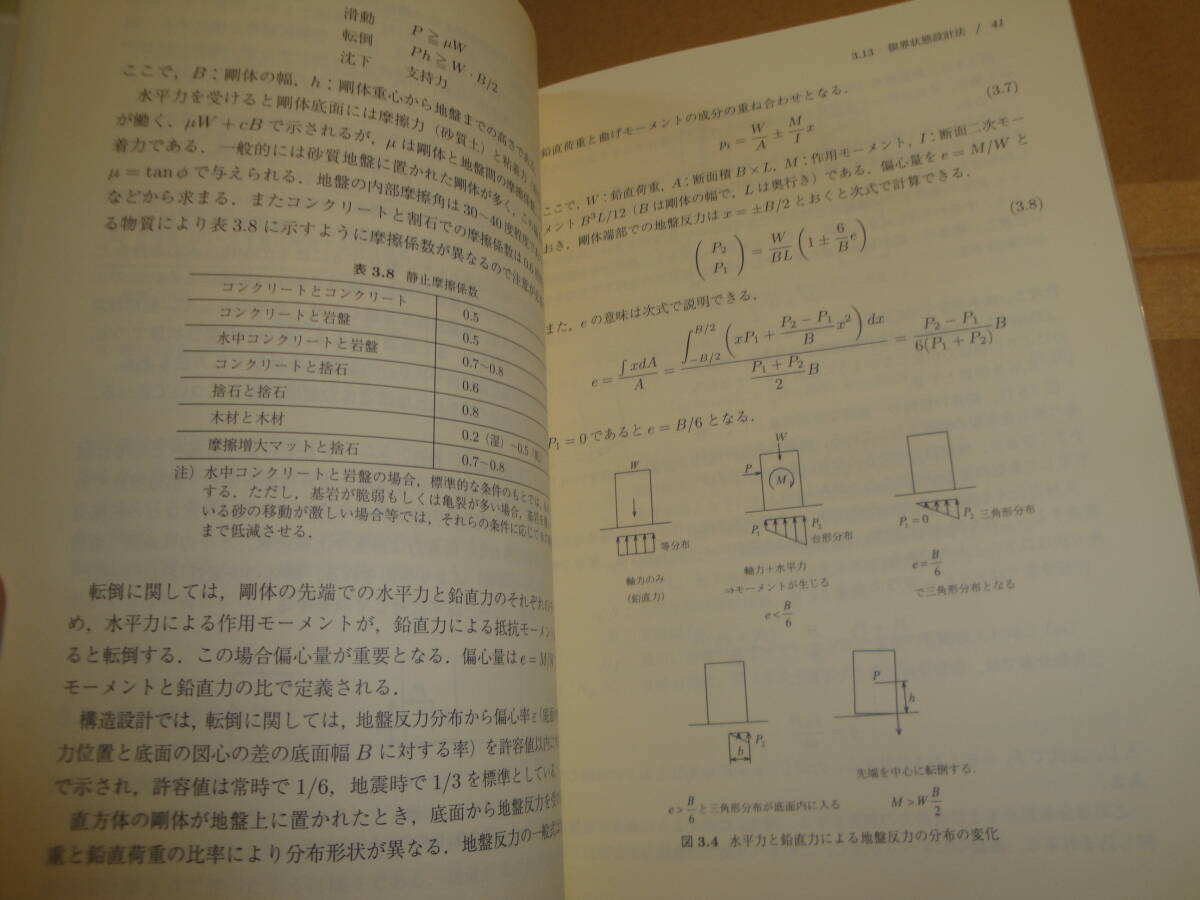 滑動 P≧μW
転倒 Ph≧W・B/2
沈下 支持力
ここで，B：剛体の幅，h：剛体重心から地盤までの高さであ
水平力を受けると剛体底面には摩擦力（砂質土）と粘着力
が働く．μW＋cBで示されるが，μは剛体と地盤間の摩擦係数
着力である．一般的には砂質地盤に置かれた剛体が多く，この
μ＝tanφで与えられる．地盤の内部摩擦角は30～40度程度
などから求まる．またコンクリートと割石での摩擦係数は0.6
る物質により表3.8に示すように摩擦係数が異なるので注意が
表3.8 静止摩擦係数
コンクリートとコンクリート 0.5
コンクリートと岩盤 0.5
水中コンクリートと岩盤 0.7~0.8
コンクリートと捨石 0.6
捨石と捨石 0.8
木材と木材 0.2（湿）~0.5
摩擦増大マットと捨石 0.7~0.8
注）水中コンクリートと岩盤の場合，標準的な条件のもとでは，
する．ただし，基岩が脆弱もしくは亀裂が多い場合，基岩を
いる砂の移動が激しい場合等では，それらの条件に応じて
まで低減させる．
転倒に関しては，剛体の先端での水平力と鉛直力のそれぞれの
め，水平力による作用モーメントが，鉛直力による抵抗モーメン
ると転倒する．この場合偏心量が重要となる．偏心量はe＝M/W
モーメントと鉛直力の比で定義される．
構造設計では，転倒に関しては，地盤反力分布から偏心率ε（底面
力位置と底面の図心の差の底面幅Bに対する率）を許容値以内に
で示され，許容値は常時で1/6，地震時で1/3を標準としている
直方体の剛体が地盤上に置かれたとき，底面から地盤反力を
重と鉛直荷重の比率により分布形状が異なる．地盤反力の一般式は
3.13 限界状態設計法 / 41
鉛直荷重と曲げモーメントの成分の重ね合わせとなる．
p_i = W/A ± M/I x (3.7)
ここで，W：鉛直荷重，A：断面積B×L，M：作用モーメント，I：断面二次モー
メントB³L/12（Bは剛体の幅で，Lは奥行き）である．偏心量をe＝M/Wと
おき，剛体端部での地盤反力はx＝±B/2とおくと次式で計算できる．
(P₂ P₁) = W/BL (1 ± 6/B e) (3.8)
また，eの意味は次式で説明できる．
e = ∫xdA / A = ∫_{-B/2}^{B/2} (xP₁ + (P₂−P₁)/B x²) dx / ((P₁+P₂)/2 B) = (P₂−P₁)/(6(P₁+P₂)) B
P₁＝0であるとe＝B/6となる．
W
等分布
軸力のみ
（鉛直力）
W
P
M
P₁ P₂
台形分布
軸力＋水平力
⇒モーメントが生じる
e<B/6
P₁=0 P₂ 三角形分布
e=B/6
で三角形分布となる
P₂
b
e>B/6 と三角形分布が底面内に入る
P
h
先端を中心に転倒する．
M>W B/2
図3.4 水平力と鉛直力による地盤反力の分布の変化